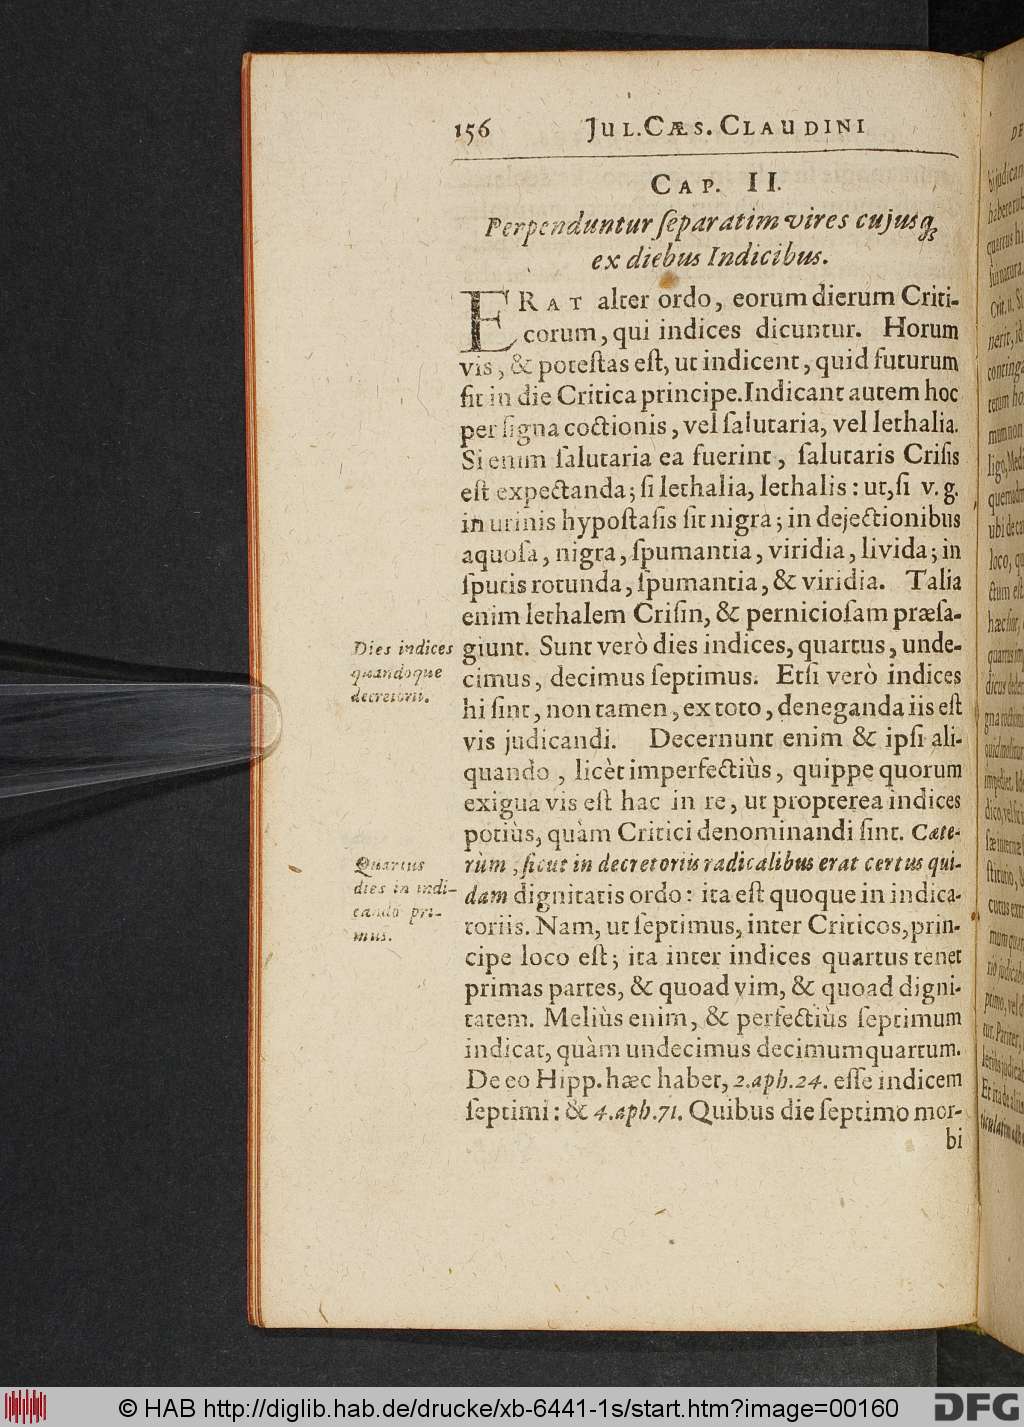 156 JUL. CÆS. CLAUDINI
CAP. II.
Perpenduntur ſeparatim vires cujusq́;
ex diebus Indicibus.
ERAT alter ordo, eorum dierum Criti-
corum, qui indices dicuntur. Horum
vis, & poteſtas eſt, ut indicent, quid futurum
ſit in die Critica principe. Indicant autem hoc
per ſigna coctionis, vel ſalutaria, vel lethalia.
Si enim ſalutaria ea fuerint, ſalutaris Criſis
eſt expectanda; ſi lethalia, lethalis: ut, ſi v. g.
in urinis hypoſtaſis ſit nigra; in dejectionibus
aquoſa, nigra, ſpumantia, viridia, livida; in
ſputis rotunda, ſpumantia, & viridia. Talia
enim lethalem Criſin, & pernicioſam præſa-
giunt. Sunt verò dies indices, quartus, unde-
cimus, decimus ſeptimus. Etſi verò indices
hi ſint, non tamen, ex toto, deneganda iis eſt
vis judicandi. Decernunt enim & ipſi ali-
quando, licèt imperfectiùs, quippe quorum
exigua vis eſt hac in re, ut propterea indices
potiùs, quàm Critici denominandi ſint. Cæte-
rùm, ſicut in decretoriis radicalibus erat certus qui-
dam dignitatis ordo: ita eſt quoque in indica-
toriis. Nam, ut ſeptimus, inter Criticos, prin-
cipe loco eſt; ita inter indices quartus tenet
primas partes, & quoad vim, & quoad digni-
tatem. Meliùs enim, & perfectiùs ſeptimum
indicat, quàm undecimus decimumquartum.
De eo Hipp. hæc habet, 2. aph. 24. eſſe indicem
ſeptimi: & 4. aph. 71. Quibus die ſeptimo mor-
bi
Dies indices
quandoque
decretorii.
Quartus
dies in indi-
cando pri-
mus.
© HAB http://diglib.hab.de/drucke/xb-6441-1s/start.htm?image=00160
DFG